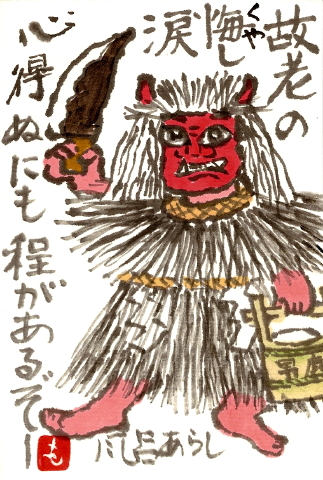 故老の
悔し
くや
涙
心得ぬにも程があるぞー
風呂あらし
も